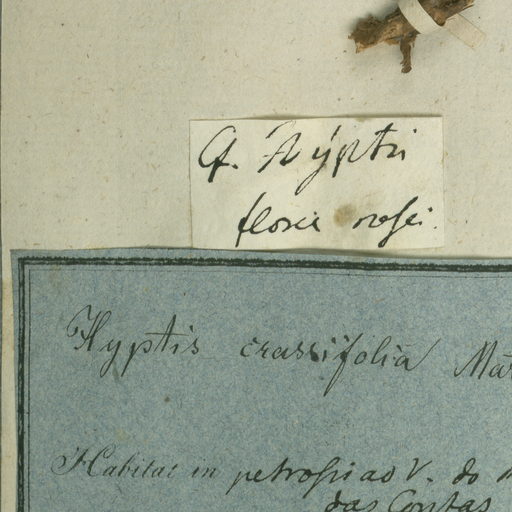 Cf. Hyptis
flores rosei.
Hyptis crassifolia Mar
Habitat in petrosis ad V. do
das Contas